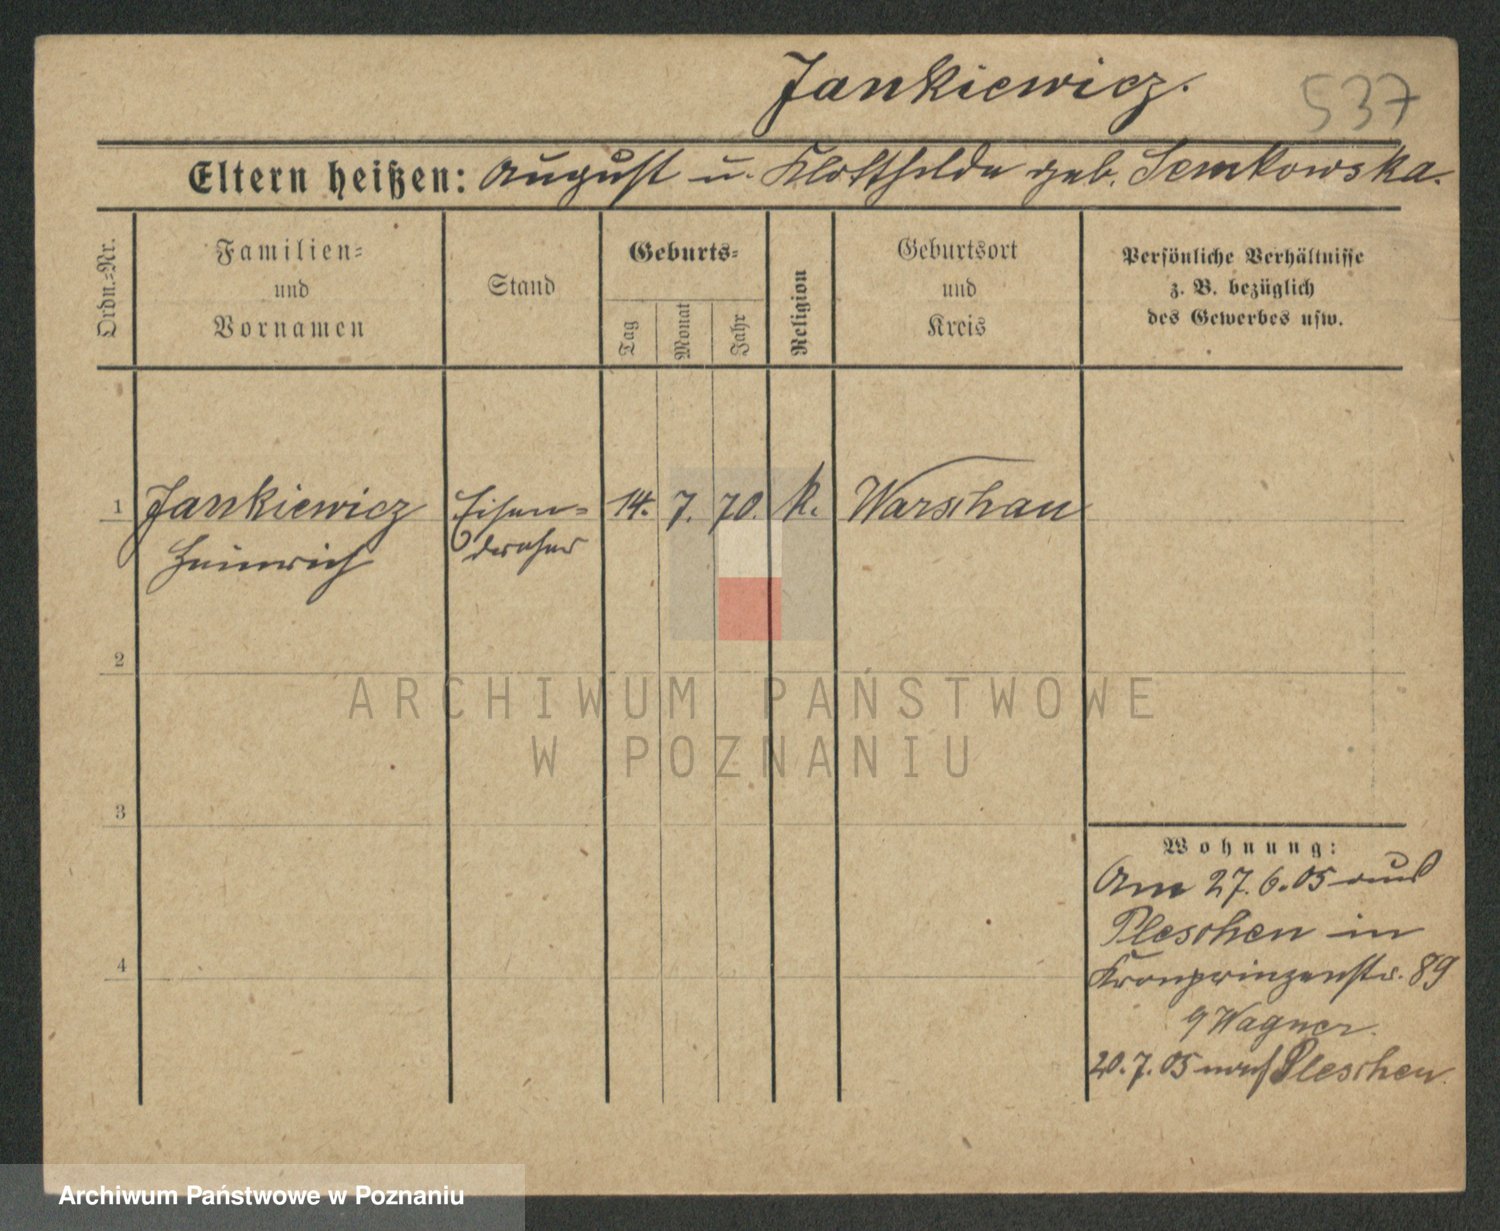 Jankiewicz.
537
Eltern heißen: August u. Klotthilde geb. Semkowska.
Ordn.=Nr.
Familien=
und
Vornamen
Stand
Geburts=
Tag
Monat
Jahr
Religion
Geburtsort
und
Kreis
Persönliche Verhältnisse
z. B. bezüglich
des Gewerbes usw.
1 Jankiewicz Eisen= 14. 7. 70. k. Warschau
Heinrich dreher
2
ARCHIWUM PAŃSTWOWE
W POZNANIU
3
Wohnung:
Am 27.6.05 aus
Pleschen in
4
Kronprinzenstr. 89
Wagner.
20.7.05 nach Pleschen.
Archiwum Państwowe w Poznaniu